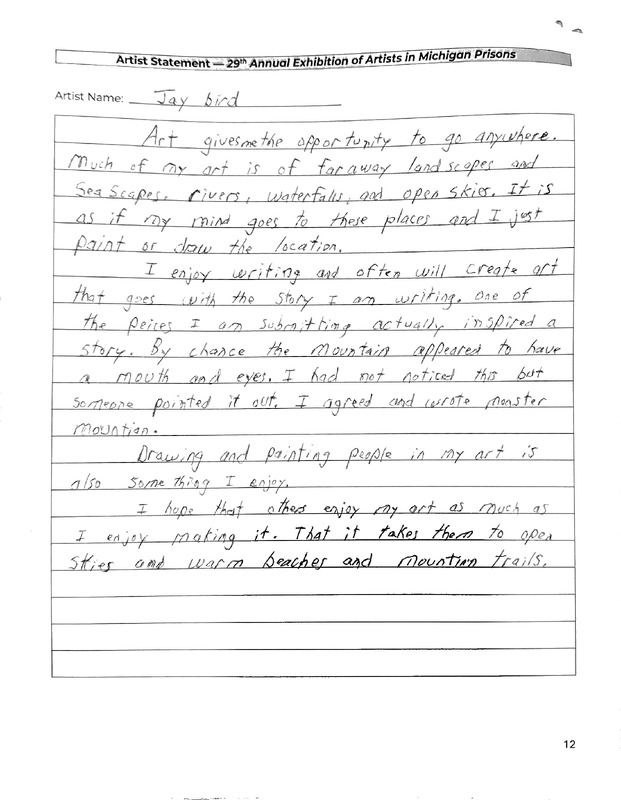 Artist Statement — 29th Annual Exhibition of Artists in Michigan Prisons
Artist Name: Jay bird
Art gives me the opportunity to go anywhere.
Much of my art is of faraway landscapes and
Sea Scapes, rivers, waterfalls, and open skies. It is
as if my mind goes to these places and I just
paint or draw the location.
I enjoy writing and often will create art
that goes with the story I am writing. One of
the peices I am submitting actually inspired a
story. By chance the mountain appeared to have
a mouth and eyes. I had not noticed this but
someone pointed it out. I agreed and wrote monster
mountian.
Drawing and painting people in my art is
also some thing I enjoy.
I hope that others enjoy my art as much as
I enjoy making it. That it takes them to open
skies and warm beaches and mountian trails.
12